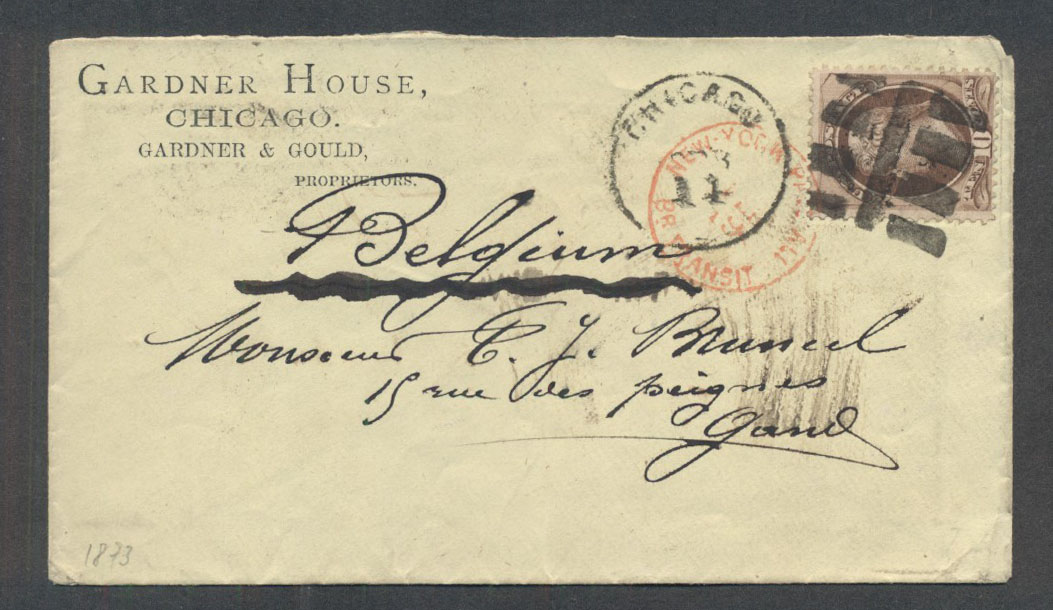 GARDNER HOUSE,
CHICAGO.
GARDNER & GOULD,
PROPRIETORS.
CHICAGO
11
NEW-YORK
BR TRANSIT
Belgium
Monsieur C. J. Bruneel
15 rue des peignes
Gand
1873